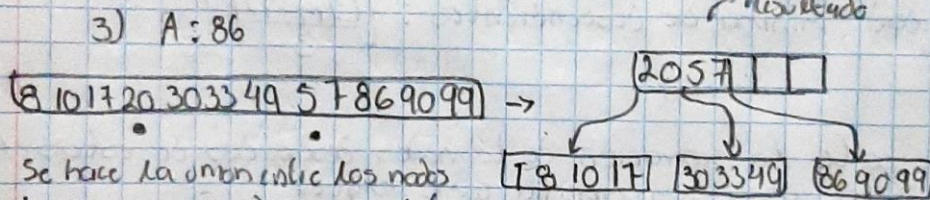 resultado
3) A: 86
8 10 17 20 30 33 49 57 86 90 99 →
20 57
Se hace la union entre los nodos
7 8 10 17
30 33 49
86 90 99